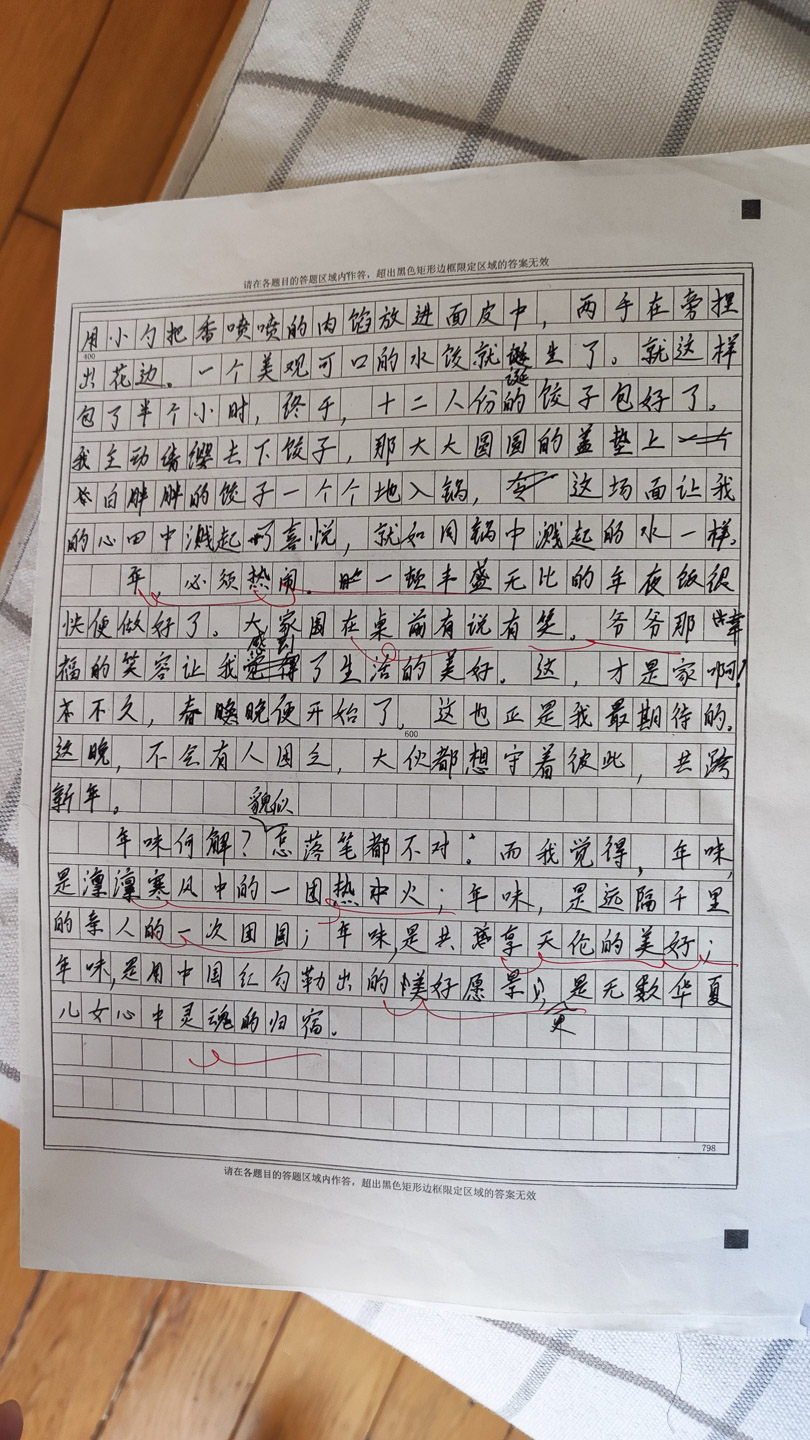 请在各题目的答题区域内作答，超出黑色矩形边框限定区域的答案无效
用小勺把香喷喷的肉馅放进面皮中，两手在旁捏
400
出花边。一个美观可口的水饺就诞生了。就这样
包了半个小时，终于，十二人份的饺子包好了。
我主动请缨去下饺子，那大大圆圆的盖垫上
白胖胖的饺子一个个地入锅，这场面让我
的心田中溅起喜悦，就如同锅中溅起的水一样。
年，必须热闹。一顿丰盛无比的年夜饭很
快便做好了。大家围在桌前有说有笑。爷爷那幸
福的笑容让我感到了生活的美好。这，才是家啊！
不久，春晚便开始了，这也正是我最期待的。
600
这晚，不会有人困乏，大伙都想守着彼此，共跨
新年。
年味何解？貌似怎落笔都不对。而我觉得，年味，
是凛凛寒风中的一团热火；年味，是远隔千里
的亲人的一次团圆；年味，是共享天伦的美好；
年味，是用中国红勾勒出的美好愿景，更是无数华夏
儿女心中灵魂的归宿。
798
请在各题目的答题区域内作答，超出黑色矩形边框限定区域的答案无效